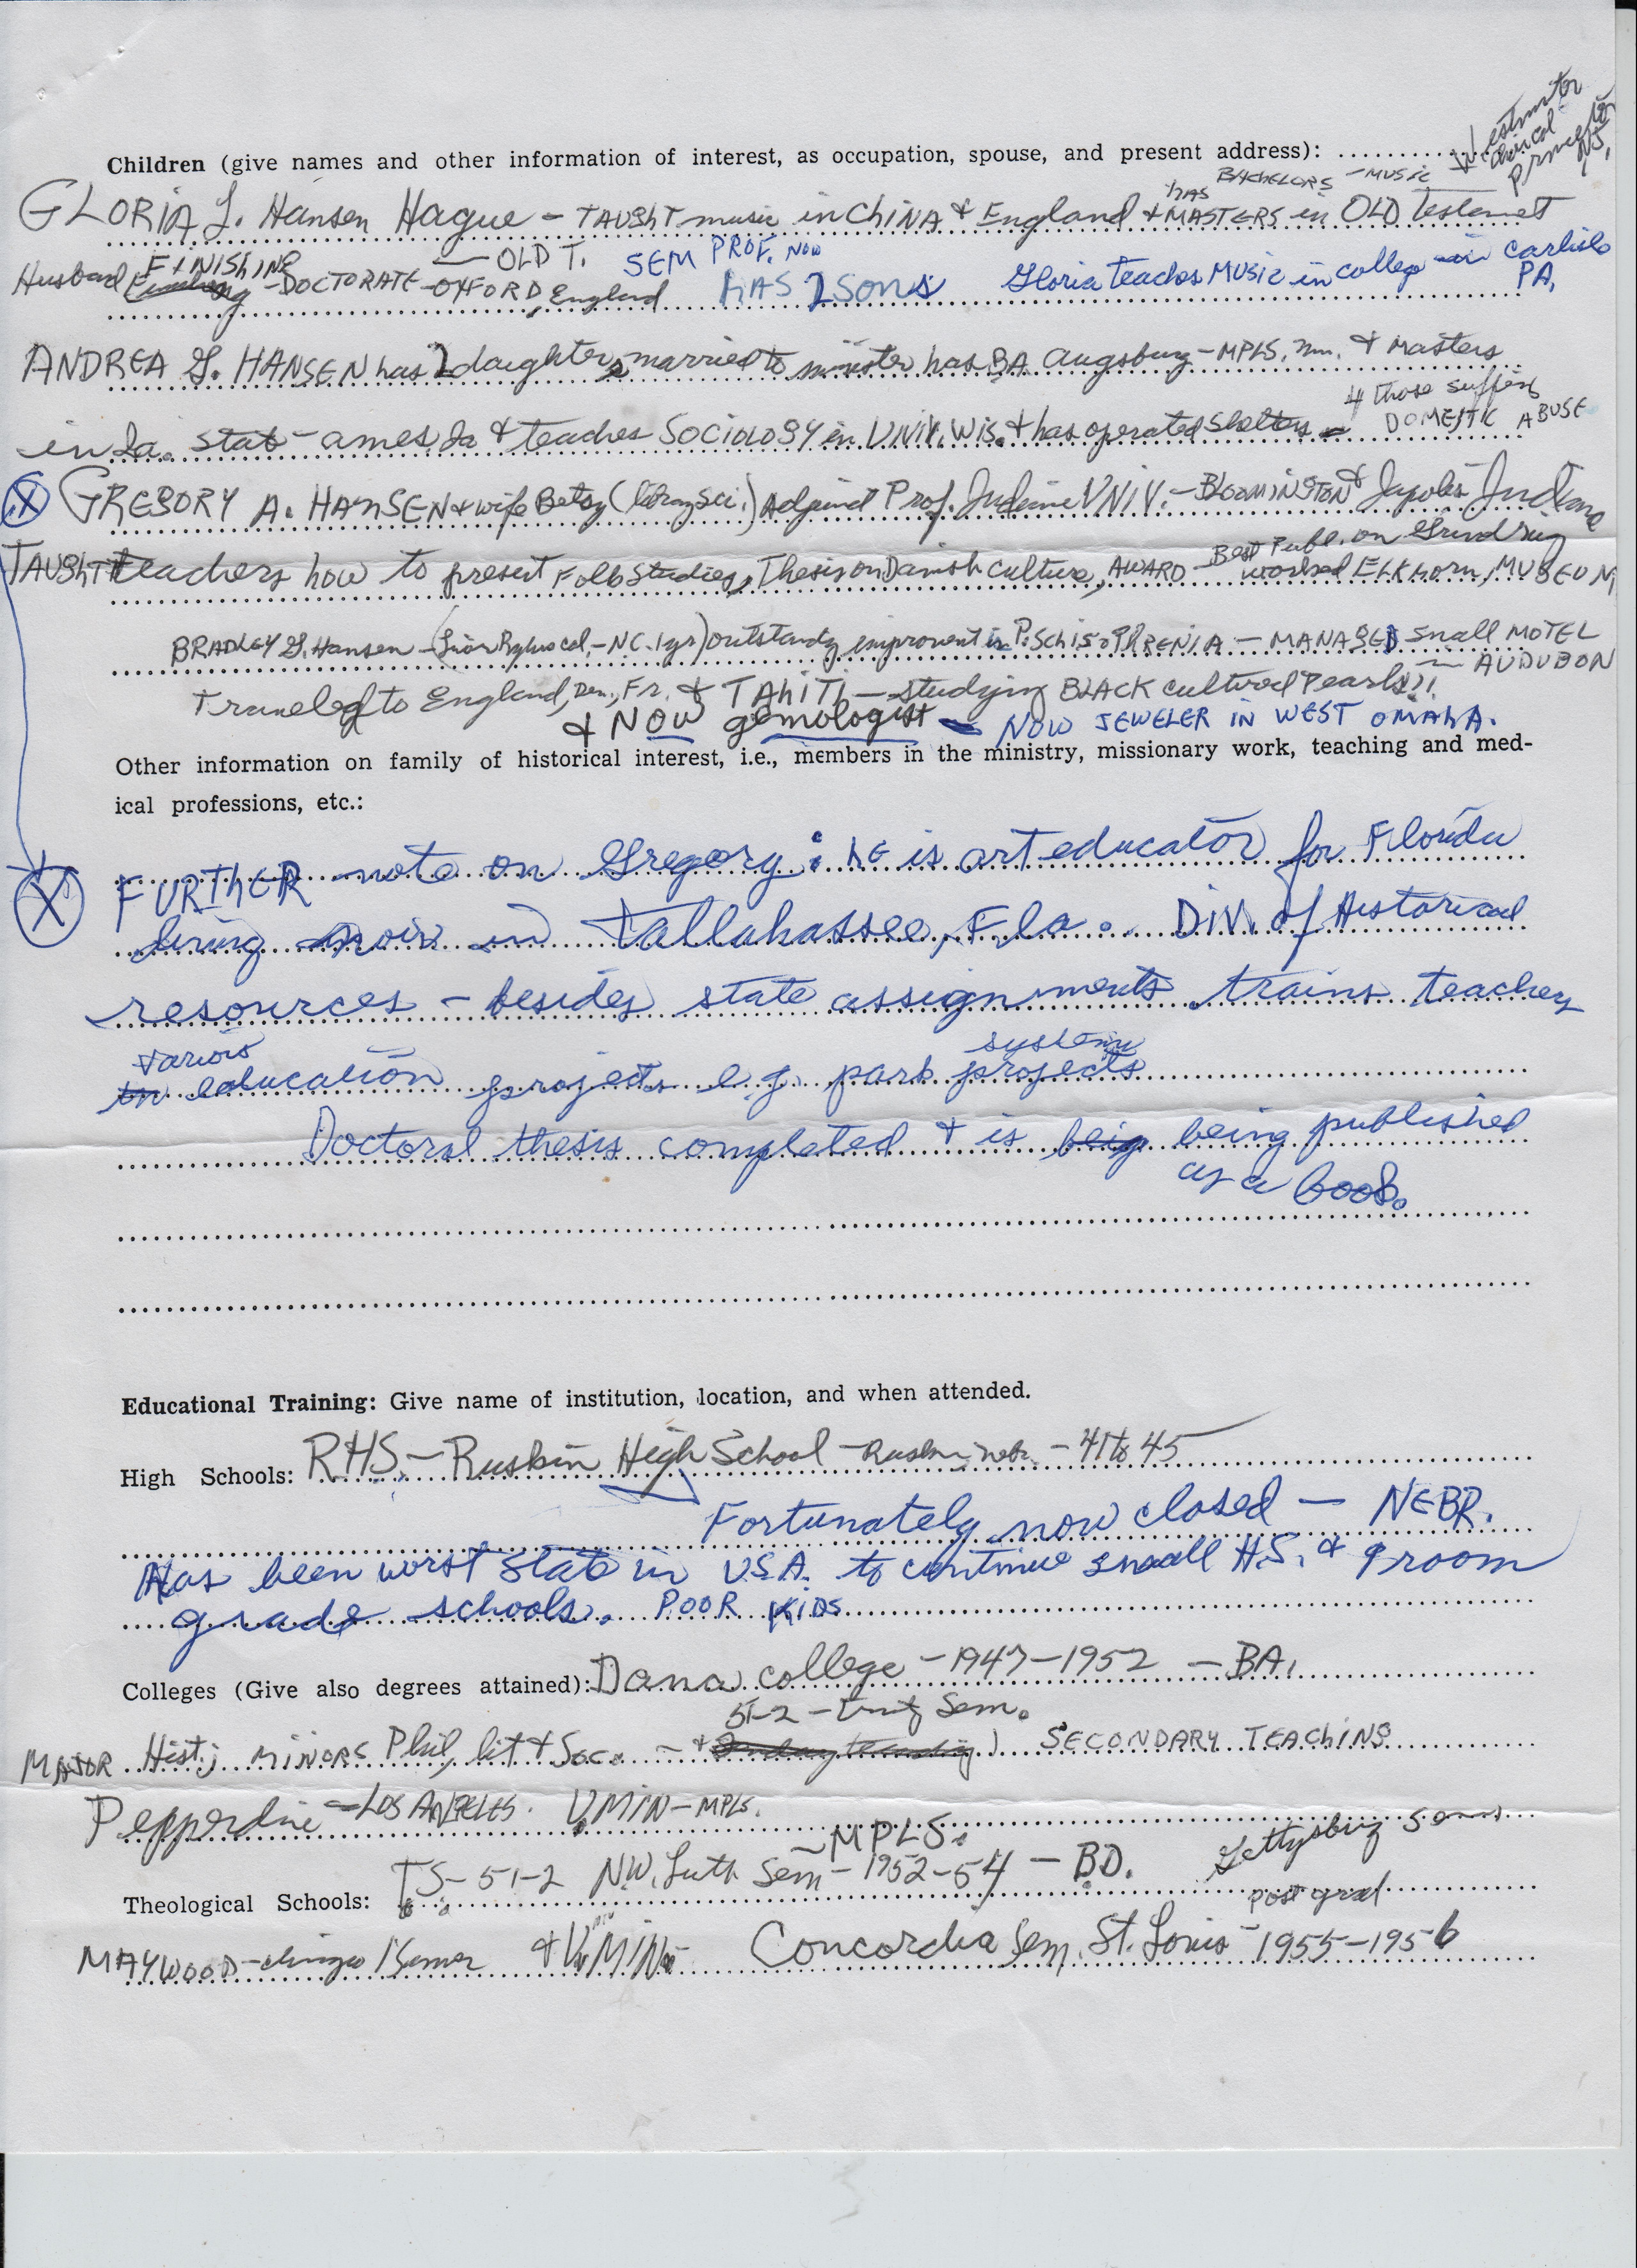 Westminster
Choical
Princeton
NJ.
Children (give names and other information of interest, as occupation, spouse, and present address):
has BACHELORS - MUSIC
GLORIA J. Hansen Hague - TAUGHT music in CHINA & England & MASTERS in OLD Testament
FINISHING - OLD T. SEM PROF. NOW
Husband - DOCTORATE - OXFORD, England HAS 2 SONS Gloria teaches MUSIC in college in Carlisle PA,
ANDREA G. HANSEN has 2 daughters, married to minister has BA Augsburg - MPLS, Mn. & Masters
4 those suffering
in Ia. State - Ames Ia & teaches SOCIOLOGY in UNIV. Wis. & has operated Shelters DOMESTIC ABUSE
X GREGORY A. HANSEN & wife Betsy (library sci.) Adjunct Prof. Indiana UNIV. - BLOOMINGTON & Indiana
Best Publ. on Grundtvig
TAUGHT teachers how to present Folk Studies, Thesis on Danish culture, AWARD - worked ELKHORN, MUSEUM
BRADLEY G. Hansen - NC. 1 yr) outstandg improvment in P. SCHISOPHRENIA - MANAGED small MOTEL
- AUDUBON
Traveled to England, Den., Fr. & TAHITI - studying BLACK cultured Pearls!!
& NOW gemologist - NOW JEWELER IN WEST OMAHA.
Other information on family of historical interest, i.e., members in the ministry, missionary work, teaching and med-
ical professions, etc.:
X FURTHER note on Gregory: he is art educator for Florida
living in Tallahassee, Fla. Div. of Historical
resources - besides state assignments trains teachers
various system
in education projects e.g. park projects
Doctoral thesis completed & is being published
as a book.
Educational Training: Give name of institution, location, and when attended.
High Schools: RHS - Ruskin High School - Ruskin, Nebr. - 41 to 45
Fortunately now closed - NEBR.
Has been worst state in U.S.A. to continue small H.S. & 1 room
grade schools. POOR KIDS
Colleges (Give also degrees attained): Dana college - 1947-1952 - BA,
51-2 - Trinity Sem.
MAJOR Hist; MINORS Phil, lit & Soc. - & ) SECONDARY TEACHING
Pepperdine - LOS ANGELES. U, MIN - MPLS.
- MPLS. Gettysburg Sem
Theological Schools: TS - 51-2 N.W. Luth Sem - 1952-54 - BD. post grad
MAYWOOD - Chicago & U. MIN. Concordia Sem. St. Louis - 1955-1956